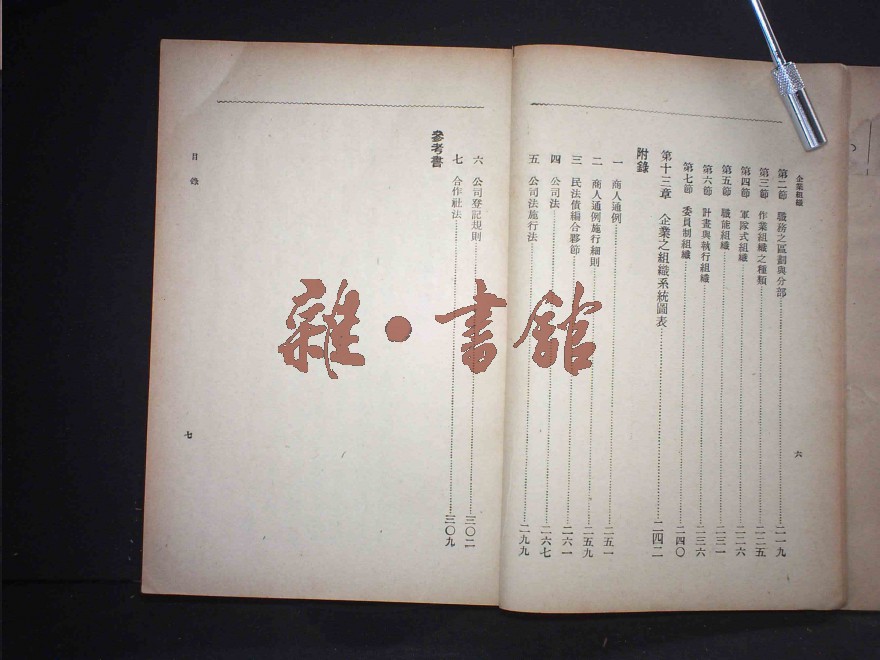 企業組織
第二節 職務之區劃與分部……二一九
第三節 作業組織之種類……二二五
第四節 軍隊式組織……二二六
第五節 職能組織……二三一
第六節 計畫與執行組織……二三六
第七節 委員制組織……二四〇
第十三章 企業之組織系統圖表……二四二
附錄
一 商人通例……二五一
二 商人通例施行細則……二五九
三 民法債編合夥節……二六一
四 公司法……二六七
五 公司法施行法……二九九
六
六 公司登記規則……三〇二
七 合作社法……三〇九
參考書
目錄
七
雜·書館